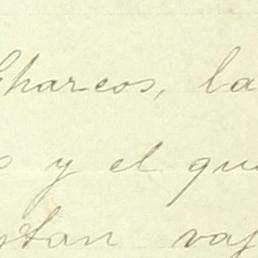 Charcos, la
s y el qu
stan vaj